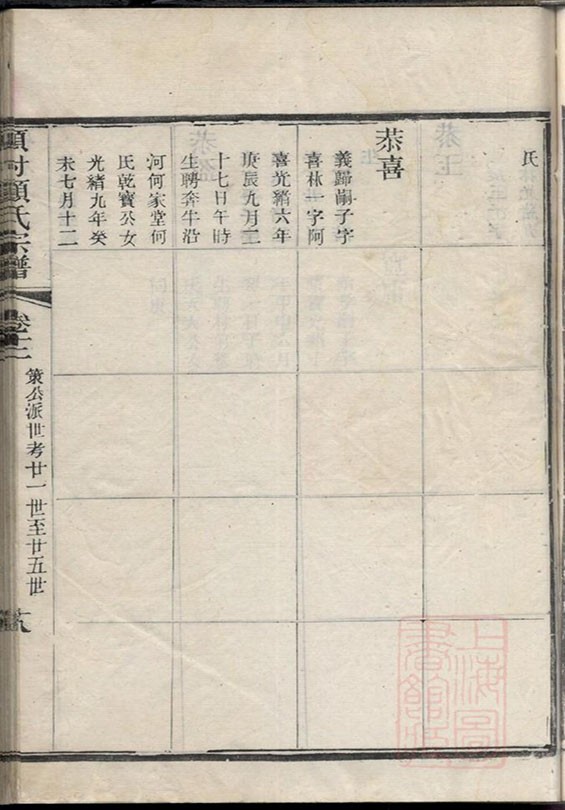 氏
恭喜
義歸嗣子字
喜林一字阿
喜光緒六年
庚辰九月二
十七日午時
生聘奔牛沿
河何家堂何
氏乾寶公女
光緒九年癸
未七月十二
項村顧氏宗譜
卷十二
策公派世考廿一世至廿五世
上海圖
書館藏